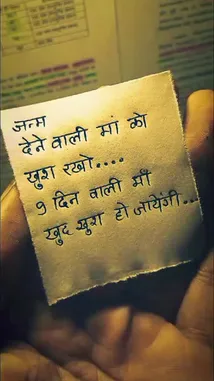 जन्म
देने वाली मां को
खुश रखो....
9 दिन वाली माँ
खुद खुश हो जायेंगी...